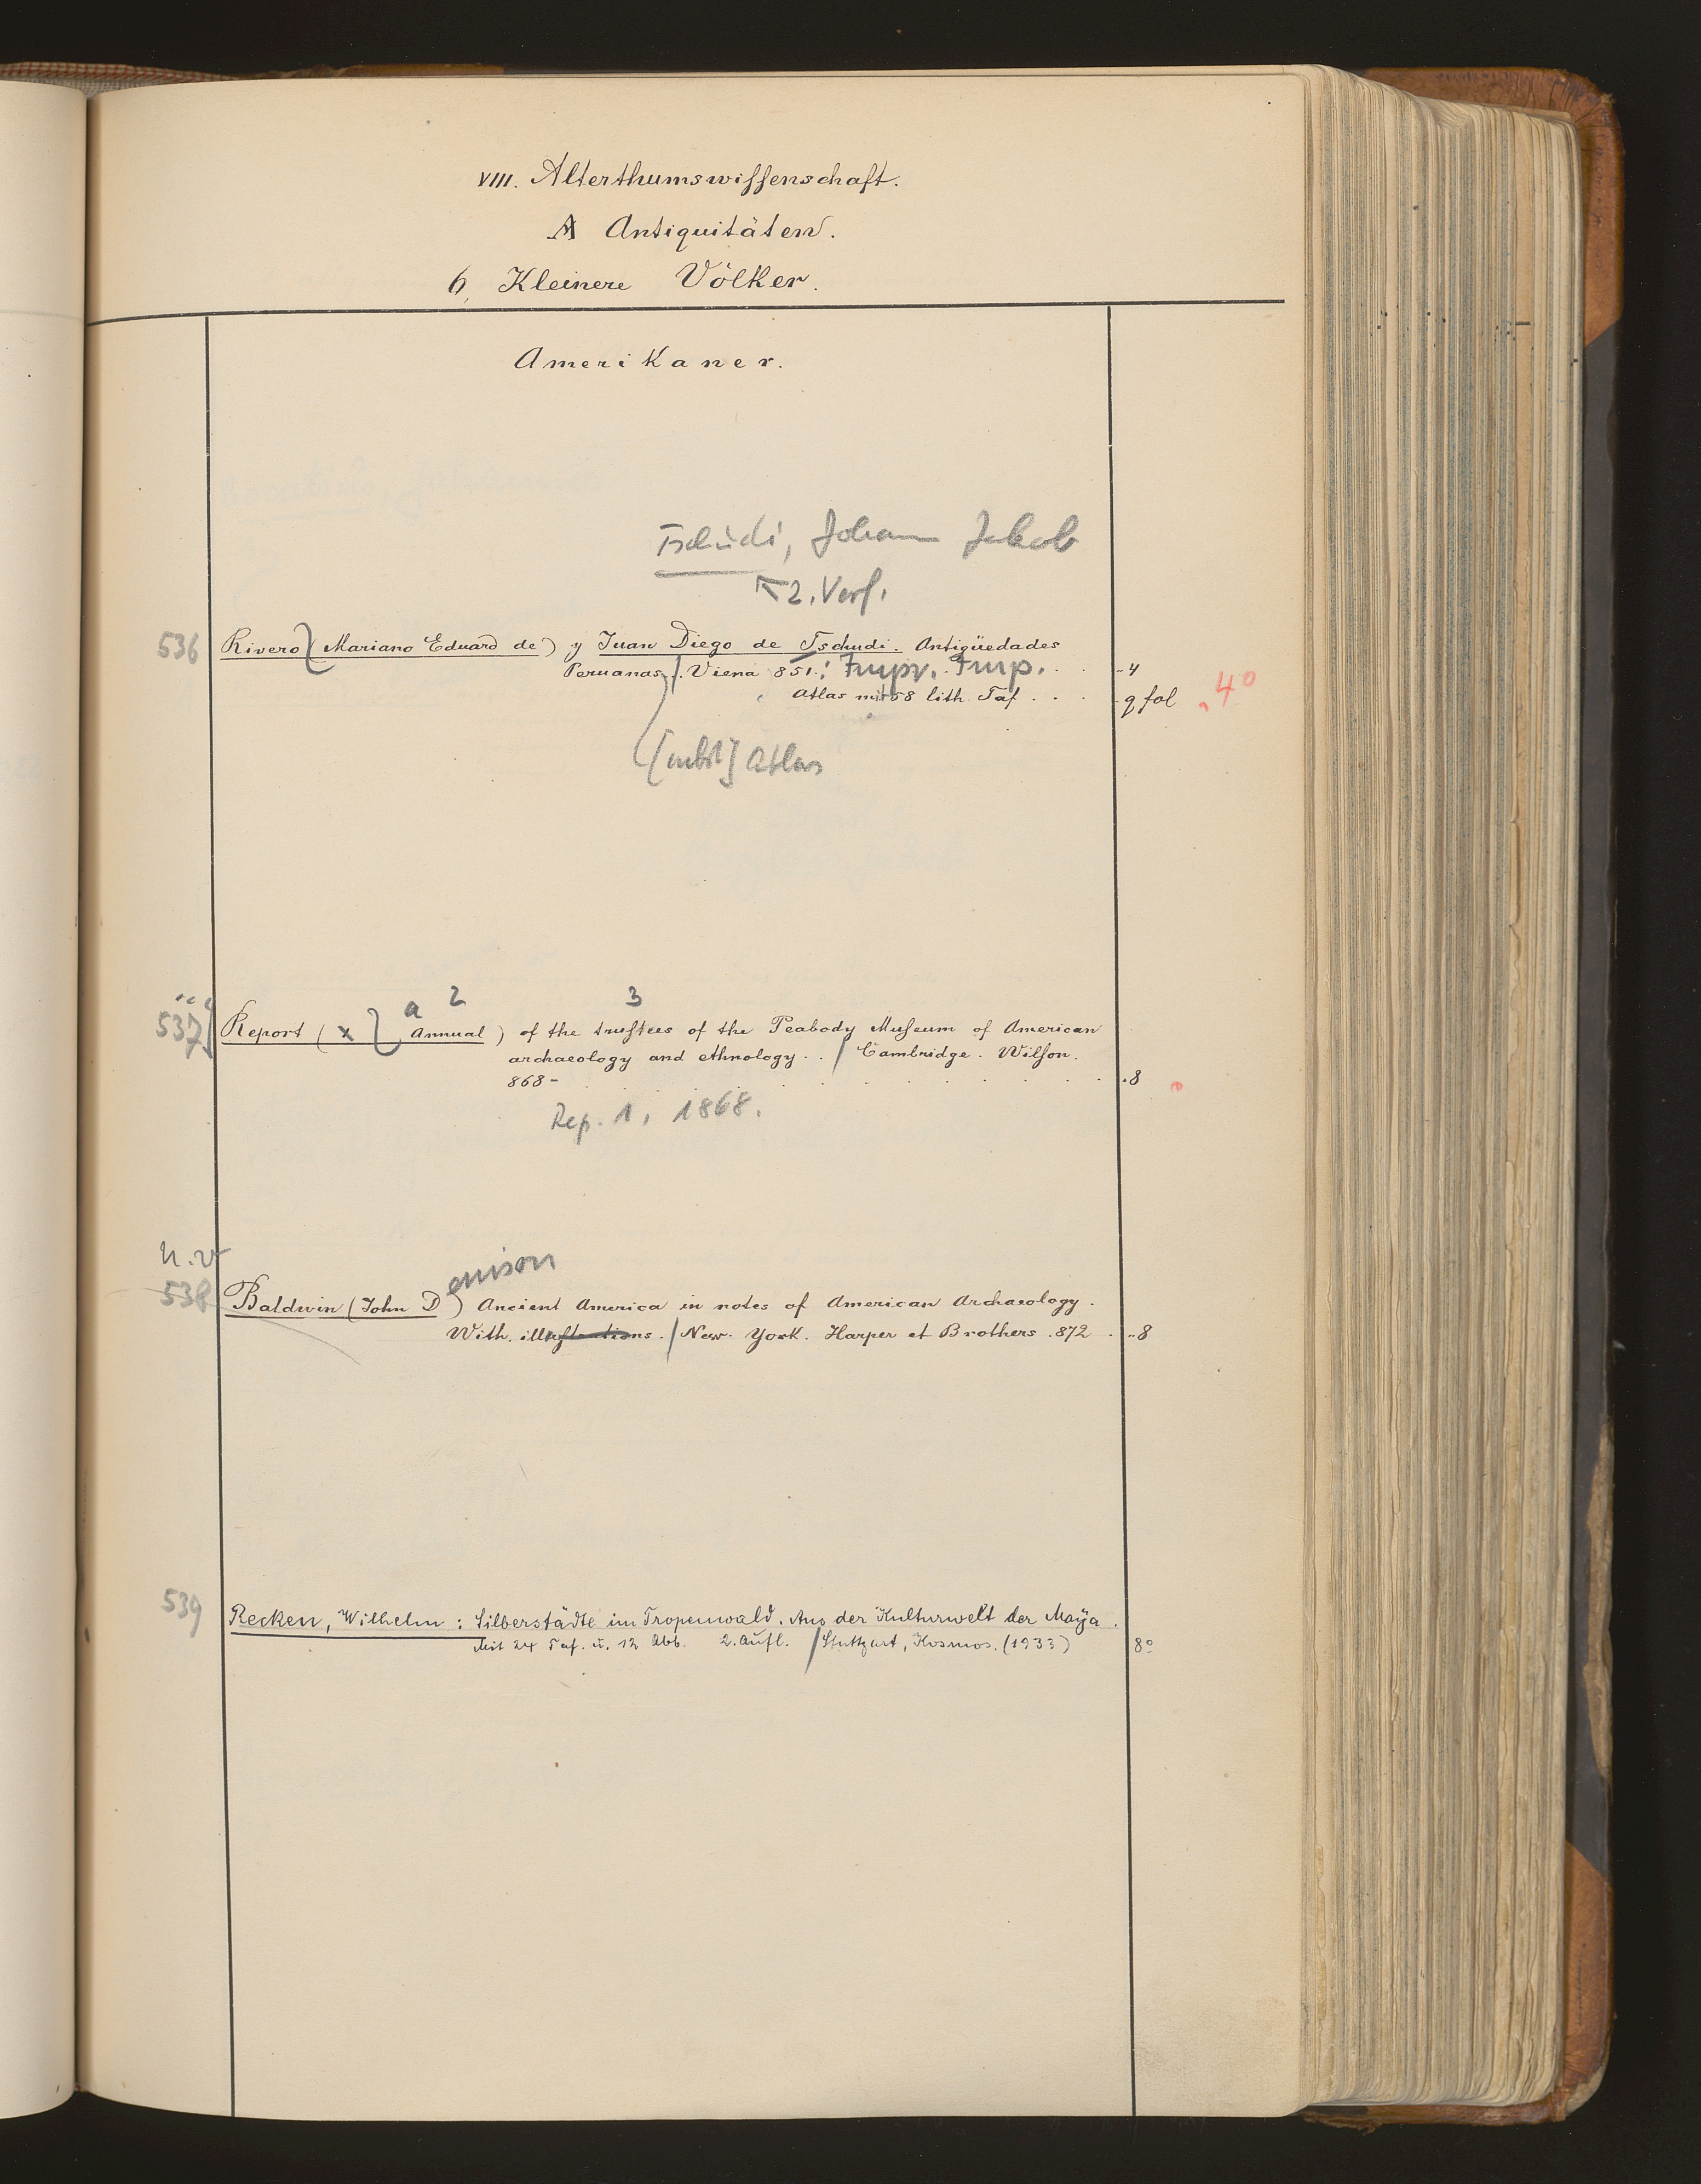 VIII. Alterthumswissenschaft.
A Antiquitäten.
6, Kleinere Völker.
Amerikaner.
Tschudi, Johann Jakob
2. Verf.
536 Rivero (Mariano Eduard de) y Juan Diego de Tschudi. Antigüedades
Peruanas. / Viena 851. : Impr. Imp. . . 4
Atlas mit 58 lith. Taf . . . gfol 4°
[nebst] Atlas
a 2 3
537 Report (x Annual) of the trustees of the Peabody Museum of American
archaeology and ethnology . . / Cambridge. Wilson.
868- . . 8
Rep. 1, 1868.
n.v
enison
538 Baldwin (John D) Ancient America in notes of American Archaeology.
With. illustrations. / New. York. Harper et Brothers. 872 . . 8
539 Recken, Wilhelm: Silberstädte im Tropenwald. Aus der Kulturwelt der Maya.
Mit 24 Taf. u. 12 Abb. 2. Aufl. / Stuttgart, Kosmos. (1933) 8°